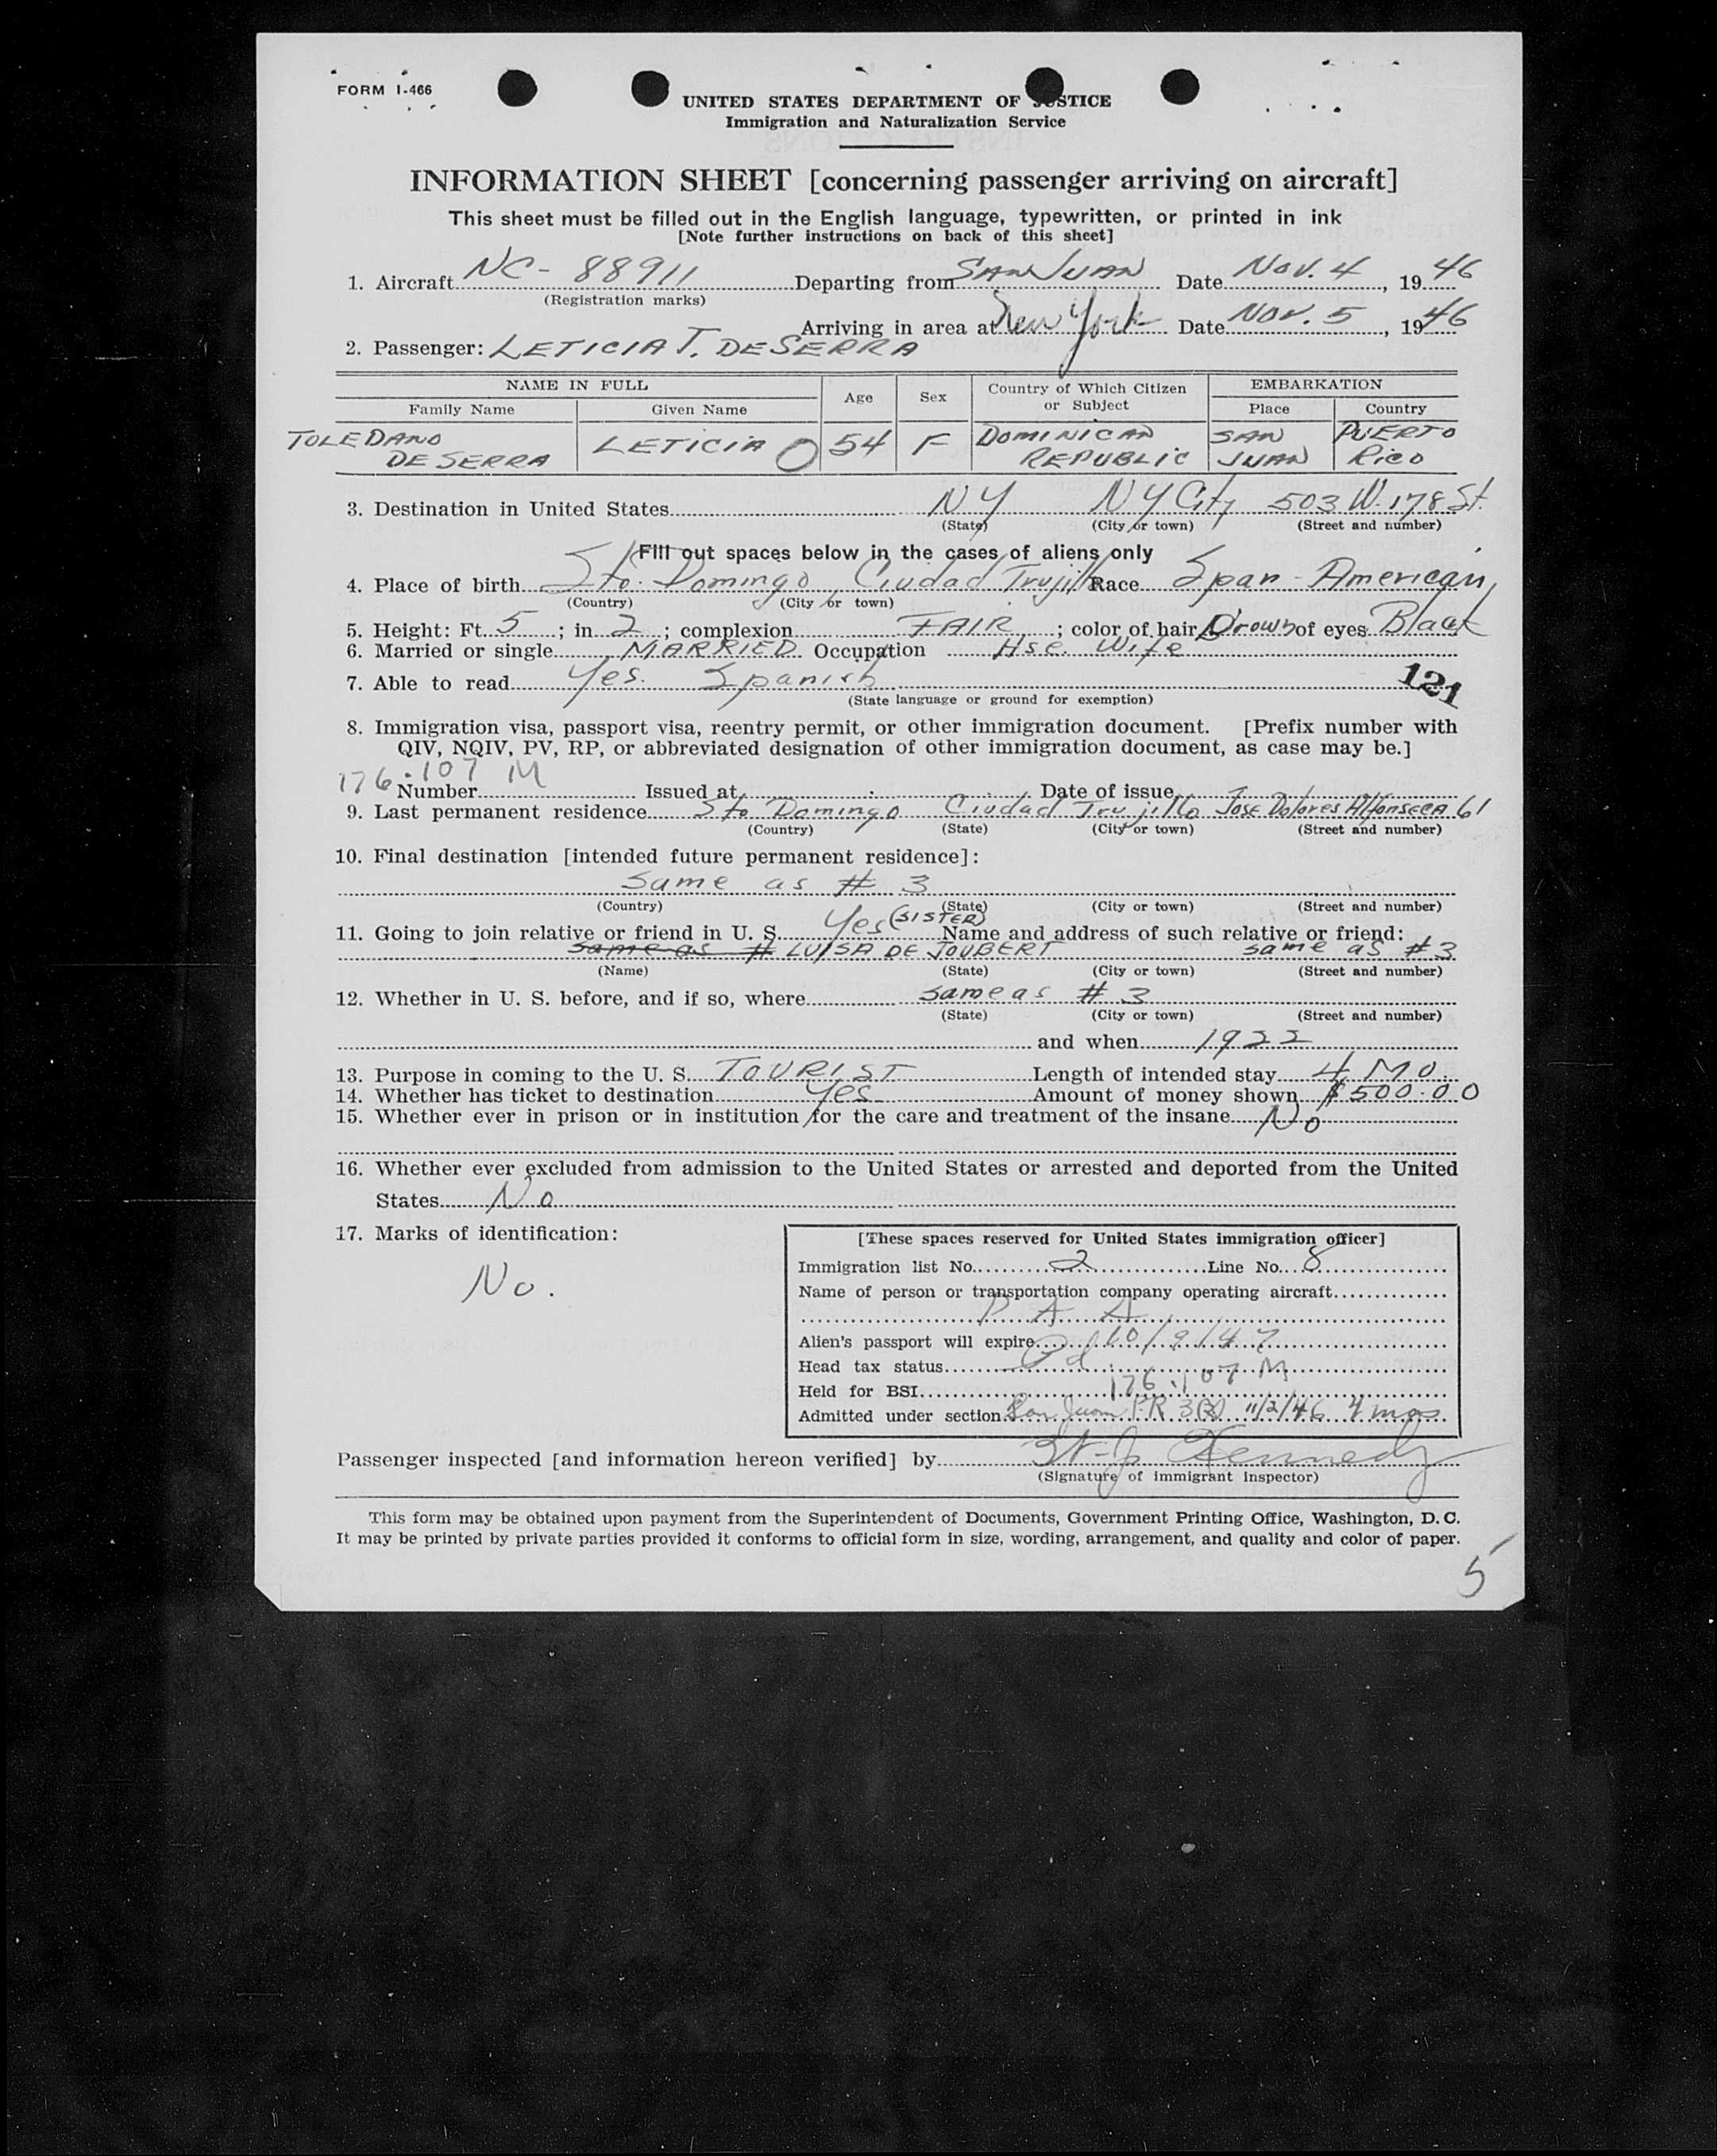 FORM I-466
UNITED STATES DEPARTMENT OF JUSTICE
Immigration and Naturalization Service
INFORMATION SHEET [concerning passenger arriving on aircraft]
This sheet must be filled out in the English language, typewritten, or printed in ink
[Note further instructions on back of this sheet]
1. Aircraft NC-88911 Departing from SAN JUAN Date Nov. 4, 1946
(Registration marks)
Arriving in area at New York Date Nov. 5, 1946
2. Passenger: LETICIA T. DE SERRA
NAME IN FULL Age Sex Country of Which Citizen or Subject EMBARKATION
Family Name Given Name Place Country
TOLEDANO LETICIA 54 F DOMINICAN SAN PUERTO
DE SERRA REPUBLIC JUAN RICO
3. Destination in United States NY NY City 503 W. 178 St.
(State) (City or town) (Street and number)
Fill out spaces below in the cases of aliens only
4. Place of birth Sto. Domingo Ciudad Trujillo Race Span-American
(Country) (City or town)
5. Height: Ft. 5; in 2; complexion FAIR; color of hair Brown of eyes Black
6. Married or single MARRIED Occupation Hse. Wife
7. Able to read Yes. Spanish
121
(State language or ground for exemption)
8. Immigration visa, passport visa, reentry permit, or other immigration document. [Prefix number with
QIV, NQIV, PV, RP, or abbreviated designation of other immigration document, as case may be.]
176.107 M
Number Issued at Date of issue
9. Last permanent residence Sto Domingo Ciudad Trujillo Jose Dolores Alfonseca 61
(Country) (State) (City or town) (Street and number)
10. Final destination [intended future permanent residence]:
Same as # 3
(Country) (State) (City or town) (Street and number)
11. Going to join relative or friend in U. S. Yes (SISTER) Name and address of such relative or friend:
same as # LUISA DE JOUBERT same as #3
(Name) (State) (City or town) (Street and number)
12. Whether in U. S. before, and if so, where same as # 3
(State) (City or town) (Street and number)
and when 1922
13. Purpose in coming to the U. S. TOURIST Length of intended stay 4 MO.
14. Whether has ticket to destination Yes Amount of money shown $500.00
15. Whether ever in prison or in institution for the care and treatment of the insane No
16. Whether ever excluded from admission to the United States or arrested and deported from the United
States No
17. Marks of identification:
No.
[These spaces reserved for United States immigration officer]
Immigration list No. 2 Line No. 8
Name of person or transportation company operating aircraft
P A A
Alien's passport will expire 10/9/47
Head tax status Pd
Held for BSI 176.107 M
Admitted under section San Juan PR 3(2) 11/2/46 4 mos
Passenger inspected [and information hereon verified] by Kennedy
(Signature of immigrant inspector)
This form may be obtained upon payment from the Superintendent of Documents, Government Printing Office, Washington, D. C.
It may be printed by private parties provided it conforms to official form in size, wording, arrangement, and quality and color of paper.
5